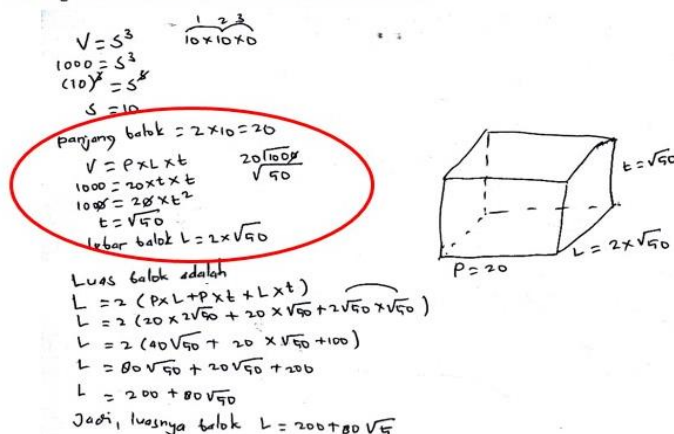 V = S³
1 2 3
10 × 10 × 0
1000 = S³
(10)³ = S³
S = 10
Panjang balok = 2 × 10 = 20
V = P × L × t
20√1000
√50
1000 = 20 × t × t
1000 = 20 × t²
t = √50
Lebar balok L = 2 × √50
t = √50
L = 2 × √50
P = 20
Luas balok adalah
L = 2 (P × L + P × t + L × t)
L = 2 (20 × 2√50 + 20 × √50 + 2√50 × √50)
L = 2 (40√50 + 20 × √50 + 100)
L = 80√50 + 20√50 + 200
L = 200 + 80√50
Jadi, luasnya balok L = 200 + 80√5